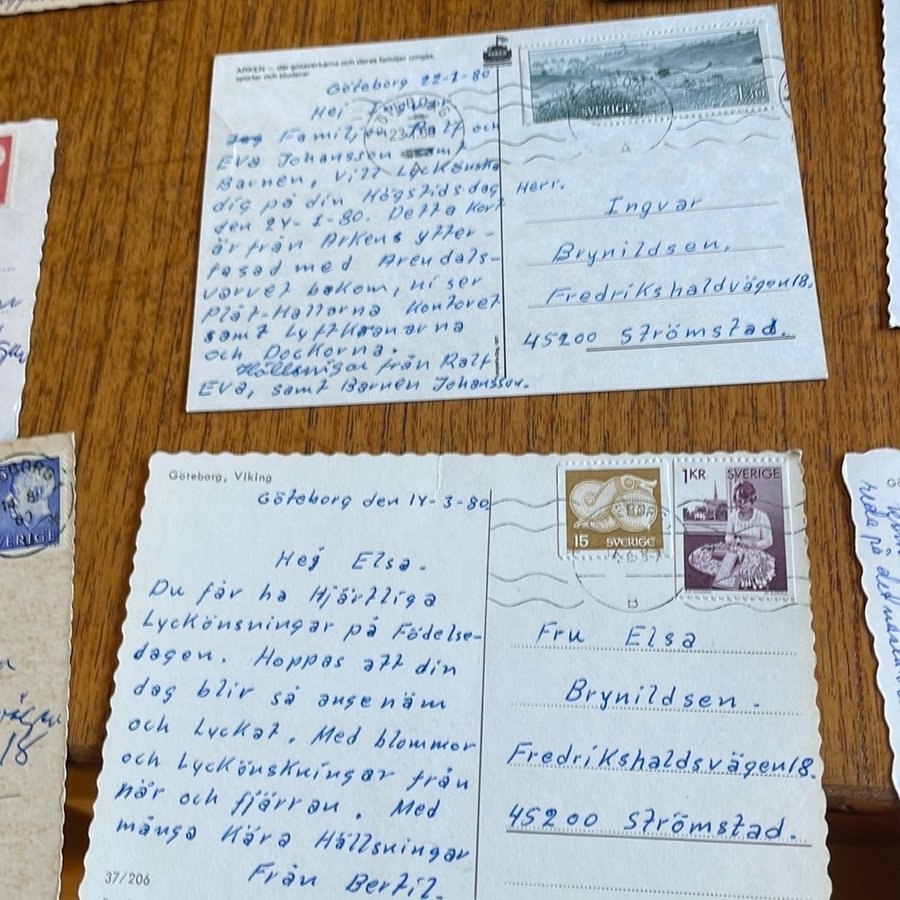 ARKEN — där götaverkarna och deras familjer umgås,
sportar och studerar
Göteborg 22-1-80
Hej Ingvar
Jag Familjen Ralf och
Eva Johansson samt
Barnen, vill Lyckönska
dig på din Högstidsdag
den 24-1-80. Detta Kort
är från Arkens ytter-
fasad med Arendals-
varvet bakom, ni ser
Plåt-Hallarna Kontoret
samt Lyftkranarna
och Dockorna.
Hällsningar från Ralf
Eva, samt Barnen Johansson.
ARKEN
SVERIGE 1.30
Herr.
Ingvar
Brynildsen.
Fredrikshaldvägen 18.
45200 Strömstad.
Göteborg, Viking
Göteborg den 14-3-80
Hej Elsa.
Du får ha Hjärtliga
Lyckönsningar på Födelse-
dagen. Hoppas att din
dag blir så angenäm
och Lyckat. Med blommor
och Lyckönskningar från
när och fjärran. Med
många Kära Hällsningar
Från Bertil.
37/206
15 SVERIGE
1KR SVERIGE
Fru Elsa
Brynildsen.
Fredrikshaldsvägen 18.
45200 Strömstad.
18
reda på det